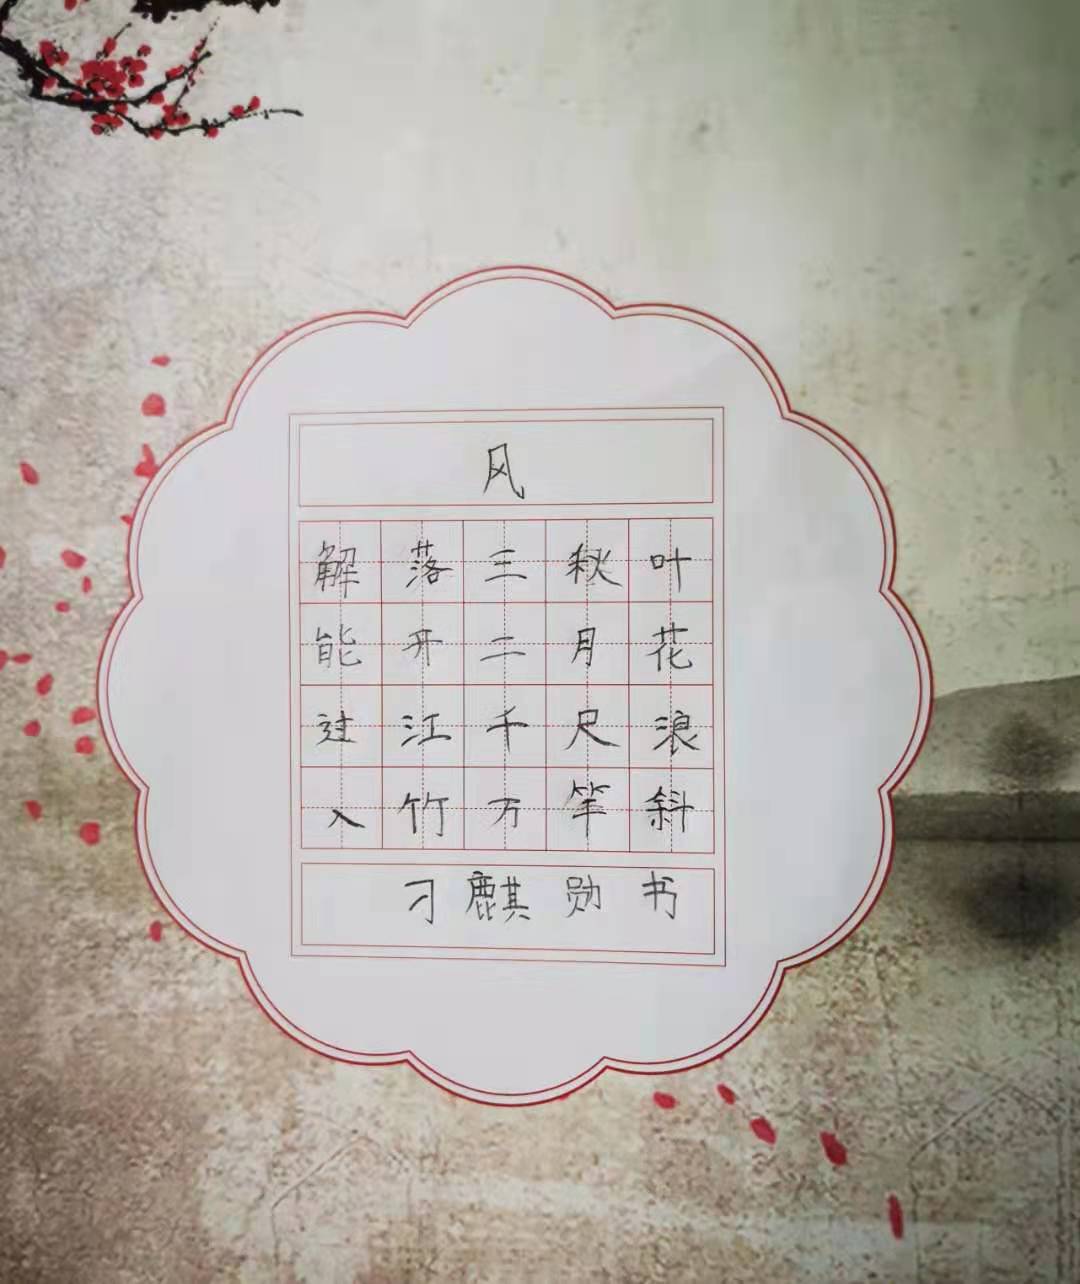 风
解落三秋叶
能开二月花
过江千尺浪
入竹万竿斜
刁麒勋书